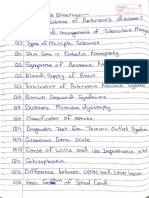 Questions
Q1 of Parkinson's disease?
and management of Tuberculous Meningitis
Q3 Types of Multiple Sclerosis
Q4 Care in Diabetic Neuropathy
Q5 Symptoms of Acoustic
Q6 Blood Supply of Brain
Q7 Evaluation of Autonomic Nervous System
Q8 Brown Sequard Syndrome
Q9 Duchenne Muscular dystrophy
Q10 Classification of Stroke
Q11 Diagnostic Test for Thoracic Outlet Syndrome
Q12 Glasgow Coma Scale
Q13 Circle of Willis and its Importance
Q14
Q15 Difference between UMN and LMN lesion
Q16 of Spinal Cord